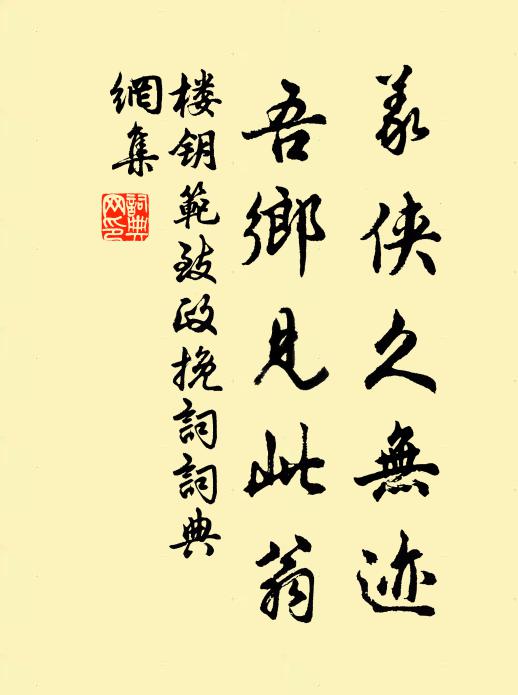 義侠久無迹
吾鄉見此翁
楼钥範致政挽詞詞典
網集
詞典
网印